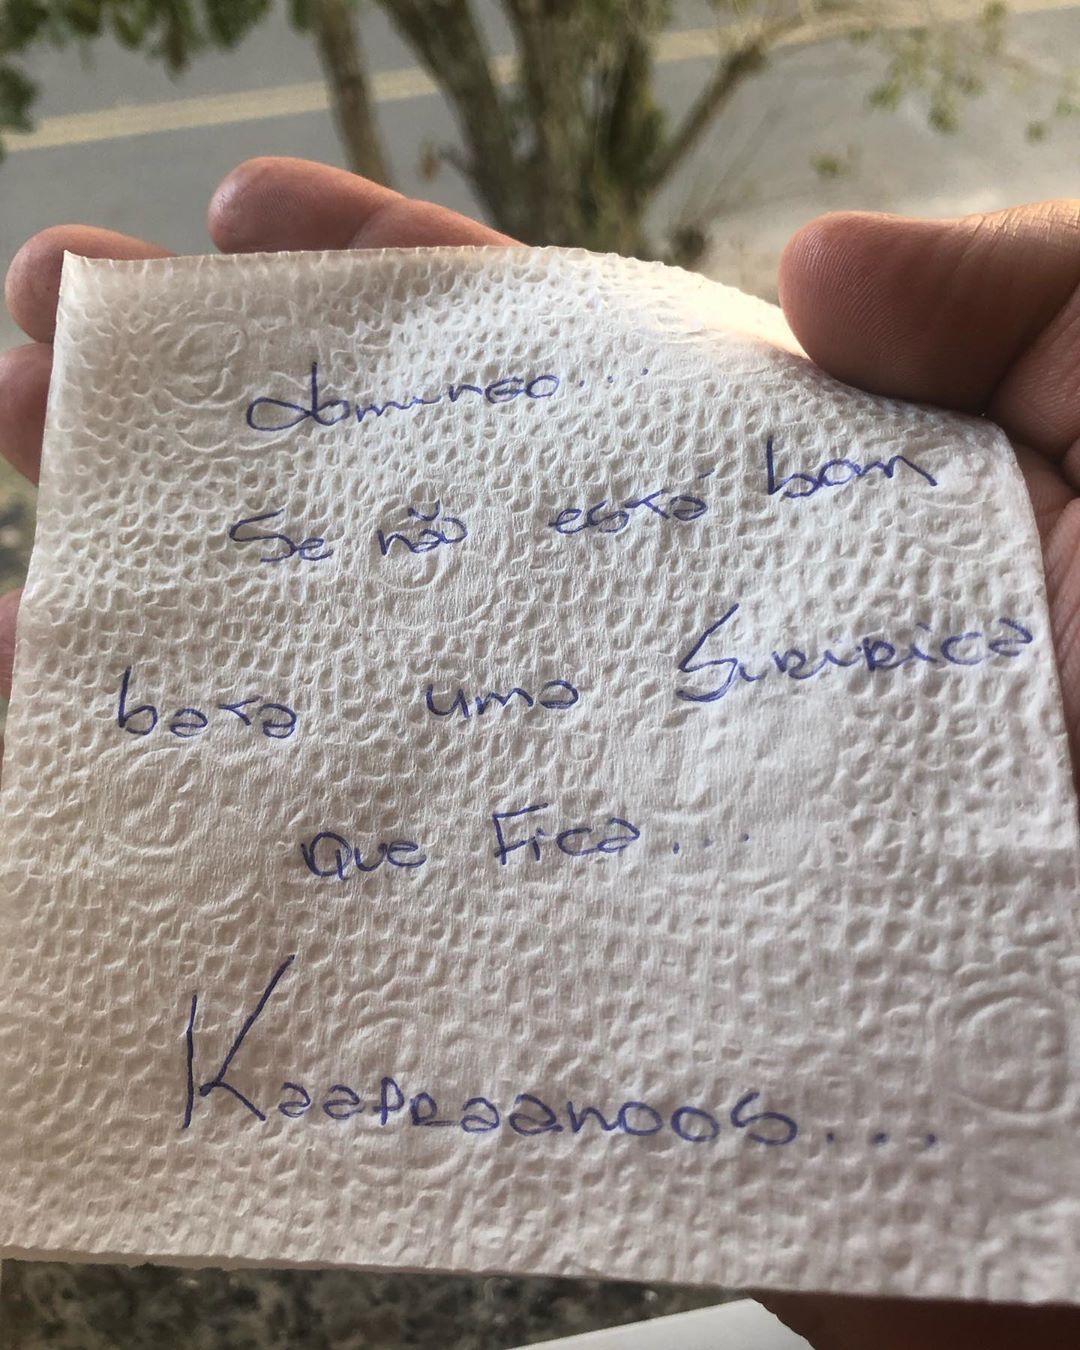 domingo...
Se não está bom
bata uma Siririca
que Fica...
Kaapraanoos....